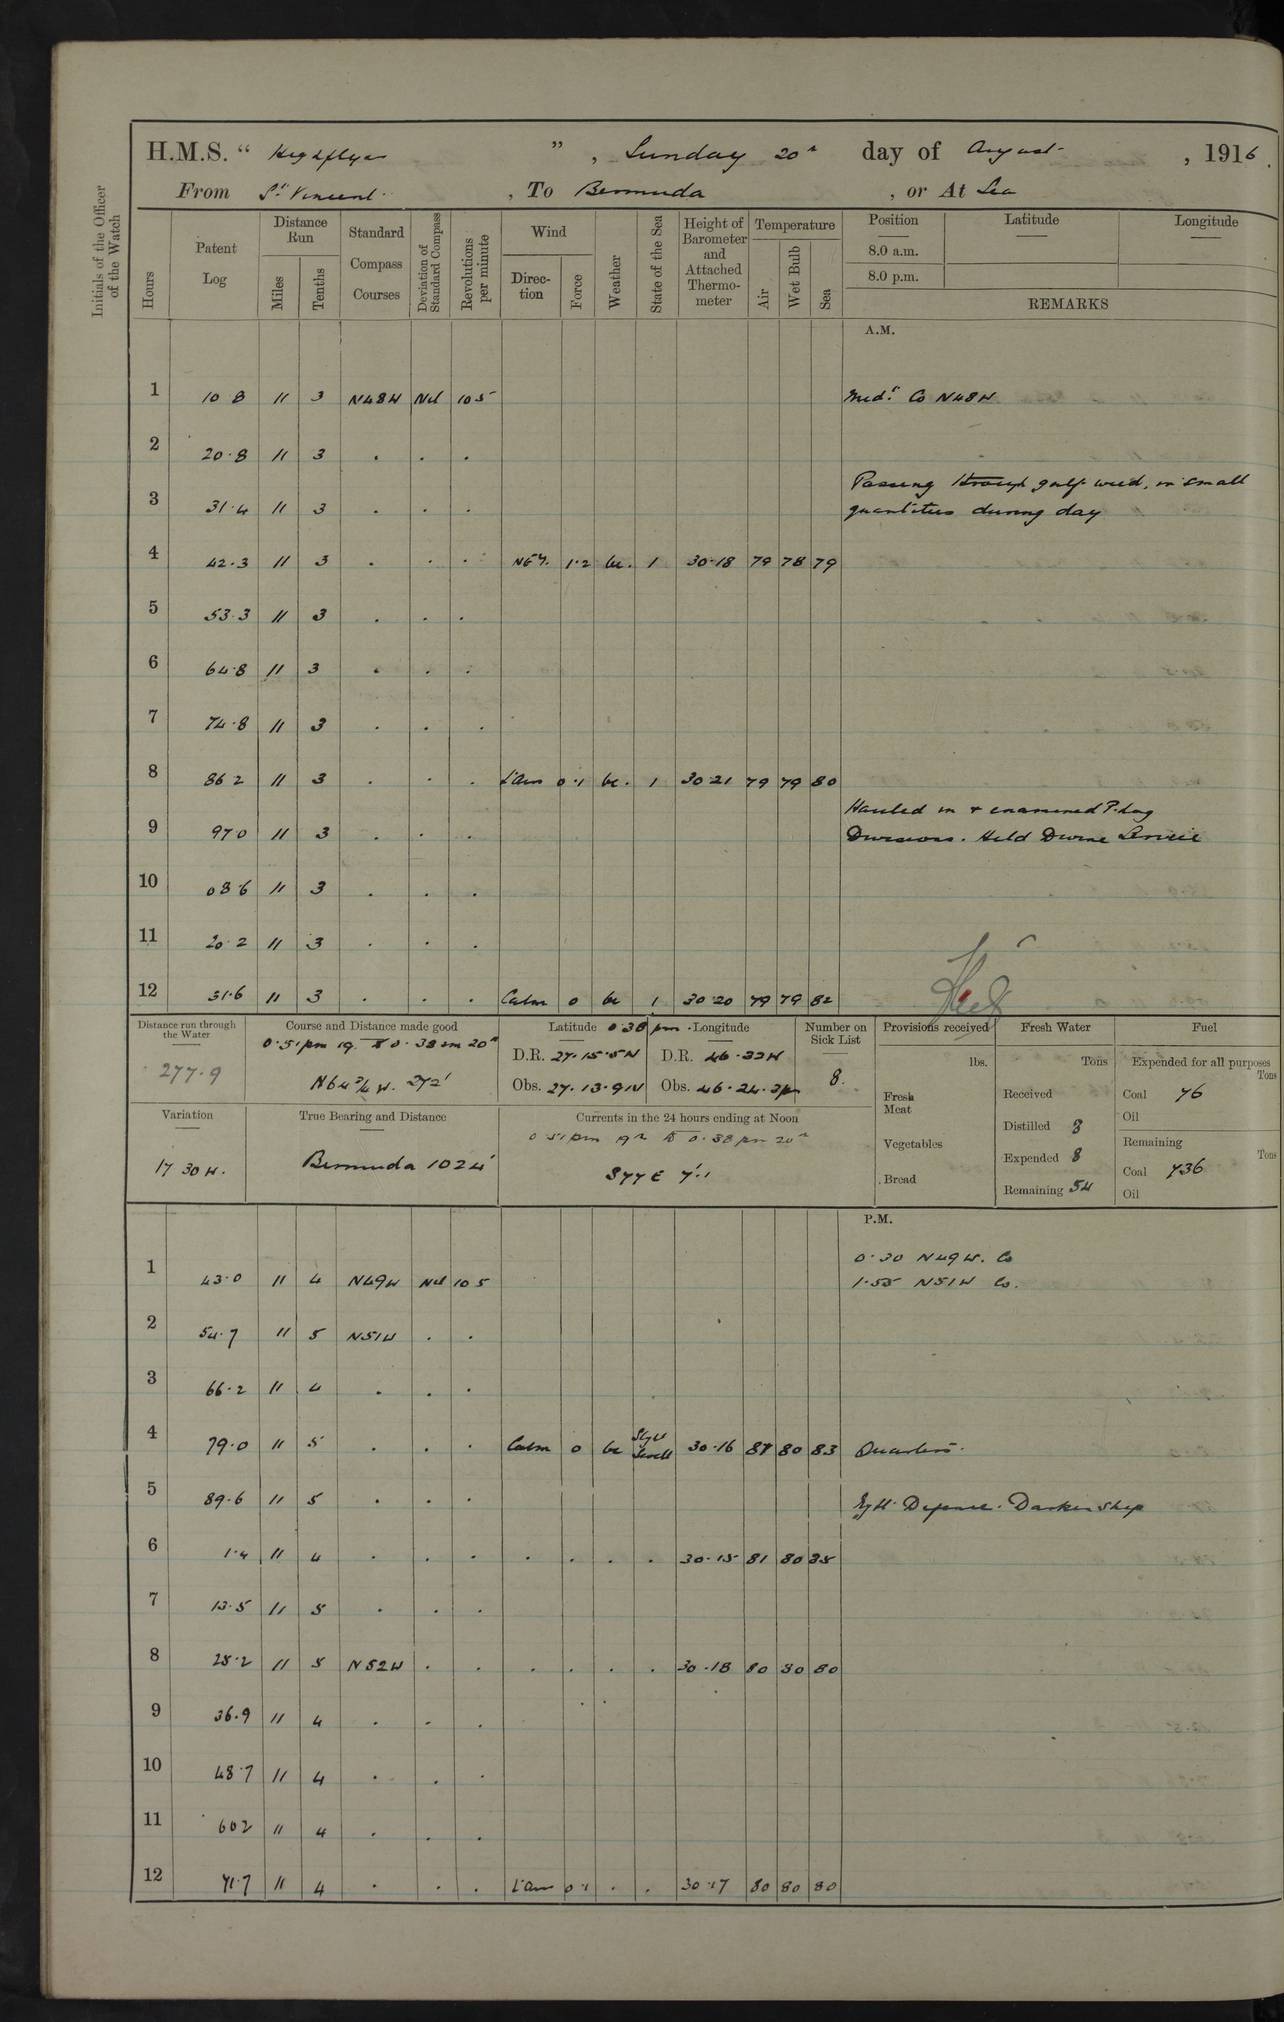 H.M.S. " Highflyer ", Sunday 20th day of August, 1916.
From St Vincent, To Bermuda, or At Sea
Initials of the Officer of the Watch
Hours
Patent Log
Distance Run
Miles
Tenths
Standard Compass Courses
Deviation of Standard Compass
Revolutions per minute
Wind
Direction
Force
Weather
State of the Sea
Height of Barometer and Attached Thermometer
Temperature
Air
Wet Bulb
Sea
Position Latitude Longitude
8.0 a.m.
8.0 p.m.
REMARKS
A.M.
1 10 8 11 3 N48W Nil 105 Mid: Co N48W
2 20.8 11 3 . . .
Passing through gulf weed, in small
3 31.4 11 3 . . . quantities during day
4 42.3 11 3 . . . NE'ly 1.2 bc. 1 30.18 79 78 79
5 53.3 11 3 . . .
6 64.8 11 3 . . .
7 74.8 11 3 . . .
8 86 2 11 3 . . . L'airs 0.1 bc. 1 30.21 79 79 80
Hauled in & examined P. Log
9 97.0 11 3 . . . Divisions. Held Divine Service
10 08.6 11 3 . . .
11 20.2 11 3 . . .
12 31.6 11 3 . . . Calm 0 bc 1 30.20 79 79 82
Distance run through the Water
277.9
Course and Distance made good
0.51pm 19th to 0.38 pm 20th
N64 3/4 W. 272'
Latitude 0 38 pm. Longitude
D.R. 27.15.5N D.R. 46.33W
Obs. 27.13.9N Obs. 46.24.
Number on Sick List
8.
Provisions received
lbs.
Fresh Meat
Vegetables
Bread
Fresh Water
Tons
Received
Distilled 8
Expended 8
Remaining 54
Fuel
Expended for all purposes
Tons
Coal 76
Oil
Remaining
Tons
Coal 736
Oil
Variation
17 30 W.
True Bearing and Distance
Bermuda 1024'
Currents in the 24 hours ending at Noon
0 51pm 19th to 0.38 pm 20th
S77E 7'.1
P.M.
0.30 N49W. Co
1 43.0 11 4 N49W Nil 105 1.55 N51W Co.
2 54.7 11 5 N51W . .
3 66.2 11 4 . . .
4 79.0 11 5 . . . Calm 0 bc Slght Swell 30.16 87 80 83 Quarters.
5 89.6 11 5 . . . Nght Defence. Darken Ship
6 1.4 11 4 . . . . . . . 30.15 81 80 85
7 13.5 11 5 . . .
8 25.2 11 5 N52W . . . . . . 30.18 80 80 80
9 36.9 11 4 . . .
10 48.7 11 4 . . .
11 60 2 11 4 . . .
12 71.7 11 4 . . . L'airs 0.1 . . 30.17 80 80 80